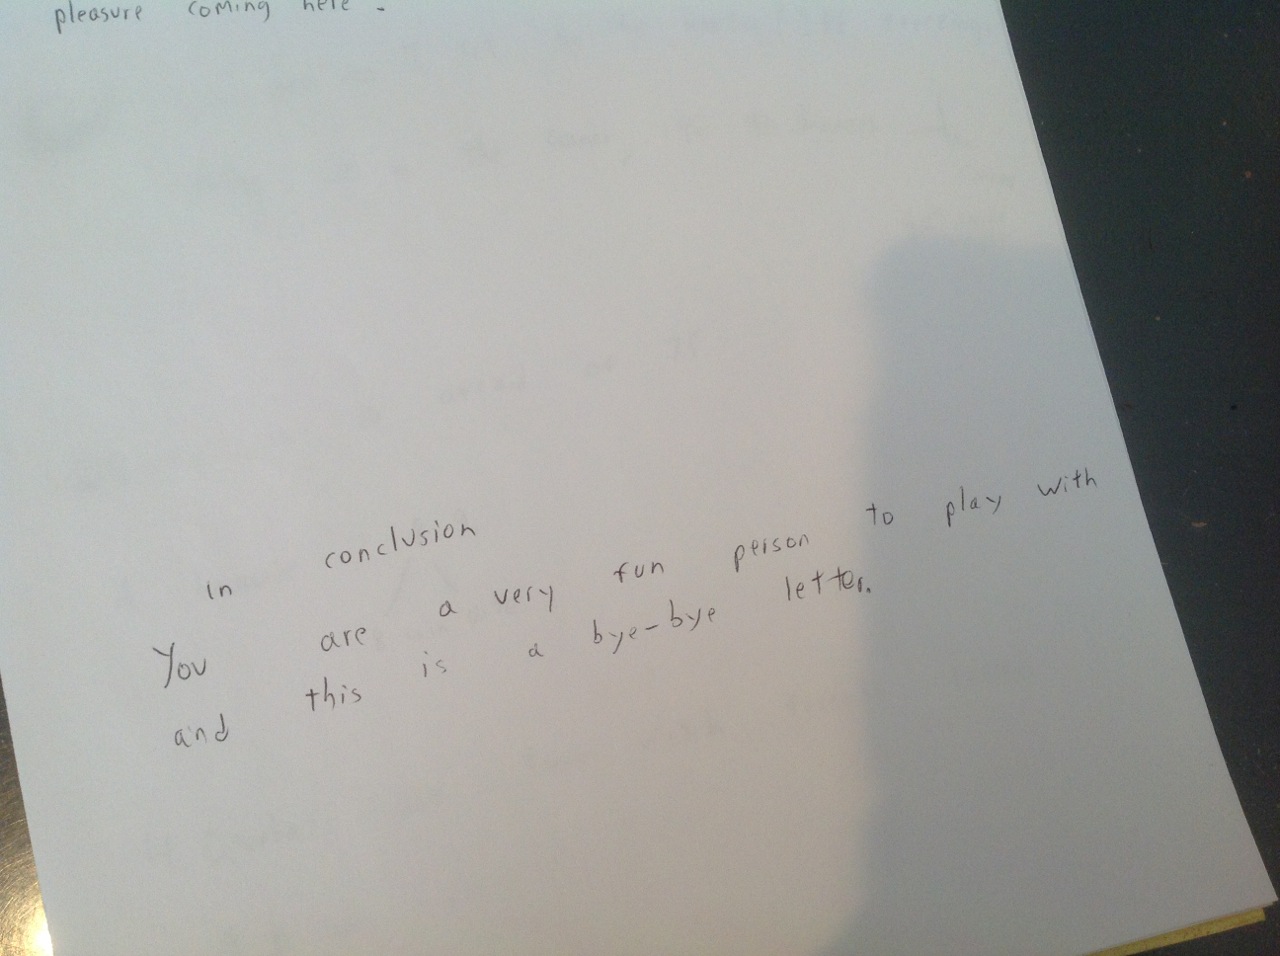 pleasure coming here.
in conclusion
You are a very fun person to play with
and this is a bye-bye letter.